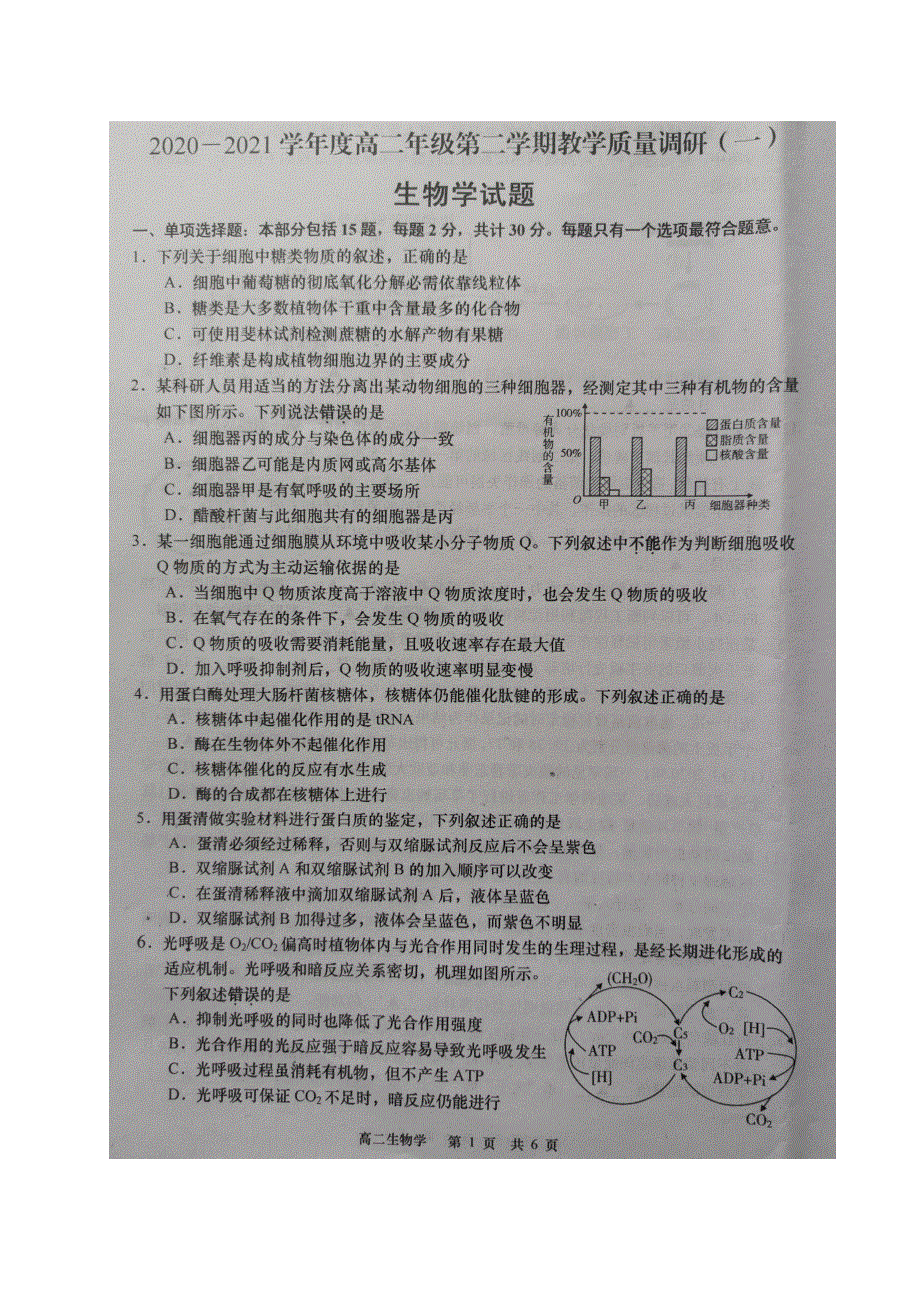 2020－2021学年度高二年级第二学期教学质量调研（一）
生物学试题
一、单项选择题：本部分包括15题，每题2分，共计30分。每题只有一个选项最符合题意。
1．下列关于细胞中糖类物质的叙述，正确的是
A．细胞中葡萄糖的彻底氧化分解必需依靠线粒体
B．糖类是大多数植物体干重中含量最多的化合物
C．可使用斐林试剂检测蔗糖的水解产物有果糖
D．纤维素是构成植物细胞边界的主要成分
2．某科研人员用适当的方法分离出某动物细胞的三种细胞器，经测定其中三种有机物的含量
如下图所示。下列说法错误的是
A．细胞器丙的成分与染色体的成分一致
B．细胞器乙可能是内质网或高尔基体
C．细胞器甲是有氧呼吸的主要场所
D．醋酸杆菌与此细胞共有的细胞器是丙
有机物的含量
100%
50%
O
甲 乙 丙 细胞器种类
蛋白质含量
脂质含量
核酸含量
3．某一细胞能通过细胞膜从环境中吸收某小分子物质Q。下列叙述中不能作为判断细胞吸收
Q物质的方式为主动运输依据的是
A．当细胞中Q物质浓度高于溶液中Q物质浓度时，也会发生Q物质的吸收
B．在氧气存在的条件下，会发生Q物质的吸收
C．Q物质的吸收需要消耗能量，且吸收速率存在最大值
D．加入呼吸抑制剂后，Q物质的吸收速率明显变慢
4．用蛋白酶处理大肠杆菌核糖体，核糖体仍能催化肽键的形成。下列叙述正确的是
A．核糖体中起催化作用的是tRNA
B．酶在生物体外不起催化作用
C．核糖体催化的反应有水生成
D．酶的合成都在核糖体上进行
5．用蛋清做实验材料进行蛋白质的鉴定，下列叙述正确的是
A．蛋清必须经过稀释，否则与双缩脲试剂反应后不会呈紫色
B．双缩脲试剂A和双缩脲试剂B的加入顺序可以改变
C．在蛋清稀释液中滴加双缩脲试剂A后，液体呈蓝色
D．双缩脲试剂B加得过多，液体会呈蓝色，而紫色不明显
6．光呼吸是O2/CO2偏高时植物体内与光合作用同时发生的生理过程，是经长期进化形成的
适应机制。光呼吸和暗反应关系密切，机理如图所示。
下列叙述错误的是
A．抑制光呼吸的同时也降低了光合作用强度
B．光合作用的光反应强于暗反应容易导致光呼吸发生
C．光呼吸过程虽消耗有机物，但不产生ATP
D．光呼吸可保证CO2不足时，暗反应仍能进行
(CH2O)
C2
ADP+Pi
CO2
C5
O2
[H]
ATP
C3
ATP
[H]
ADP+Pi
CO2
高二生物学 第1页 共6页